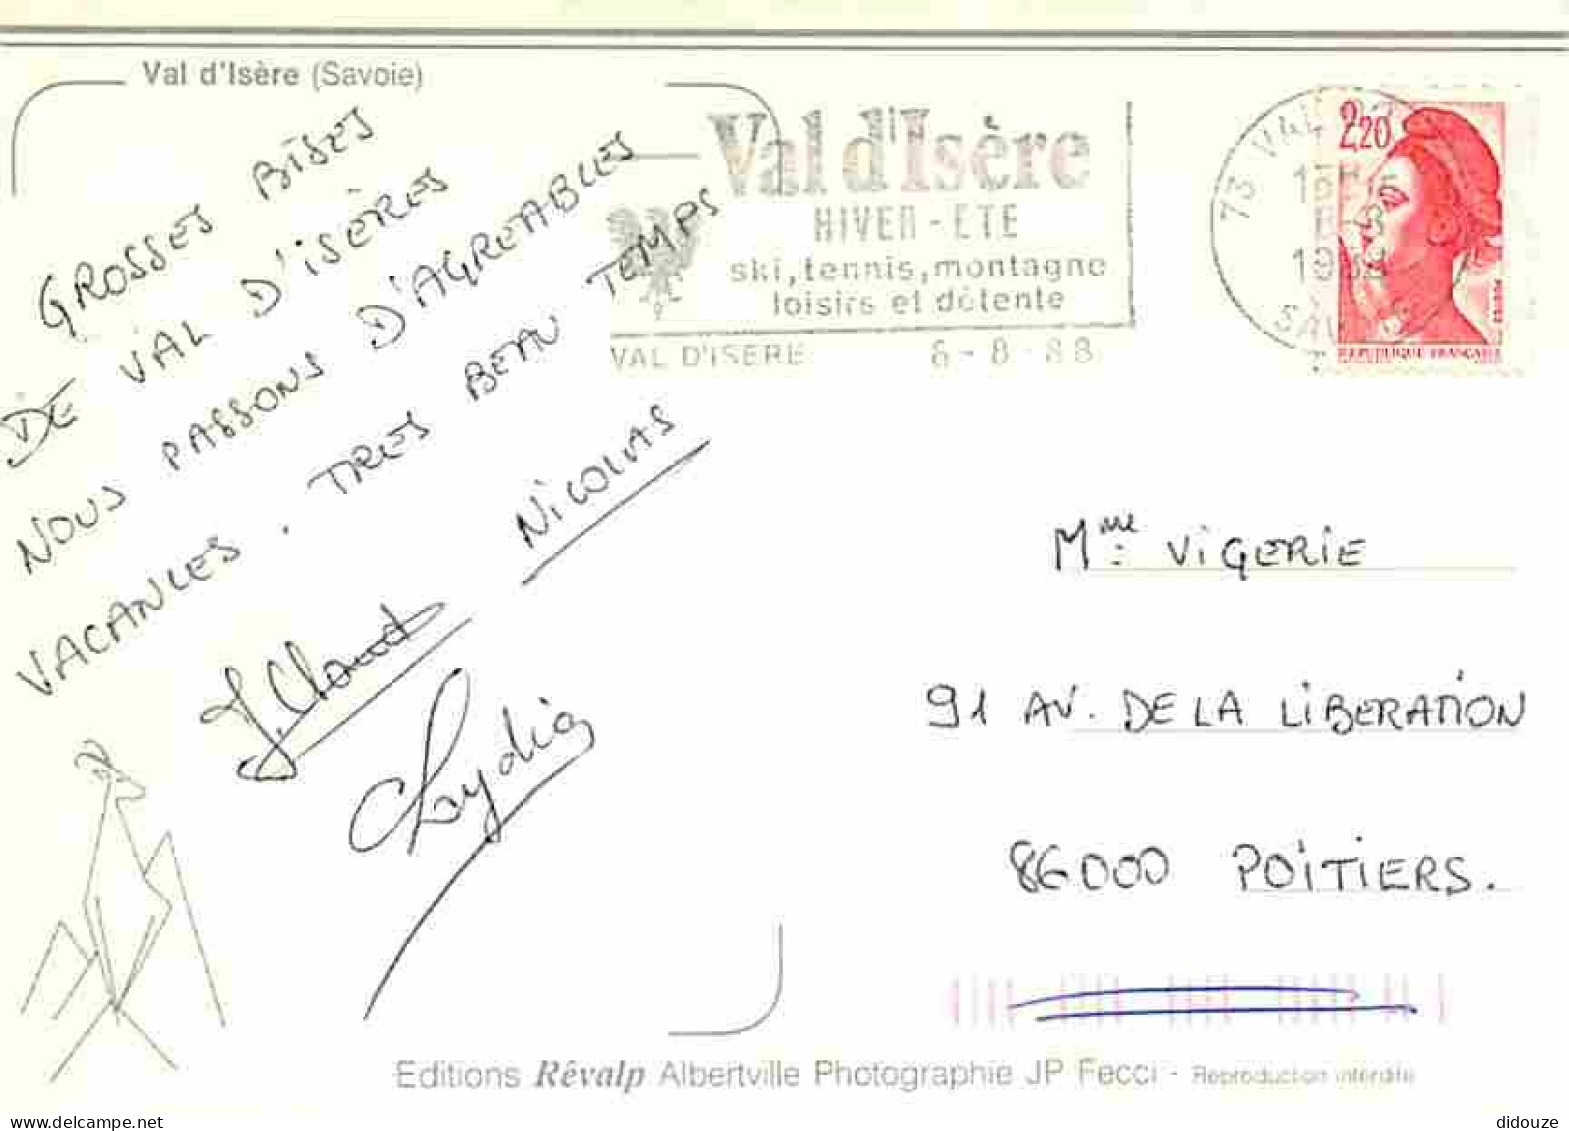 Val d'Isère (Savoie)
GROSSES BISES
DE VAL D'ISÈRES
NOUS PASSONS D'AGREABLES
VACANCES. TRES BEAU TEMPS
NICOLAS
J.Claud
Lydia
Val d'Isère
HIVER - ETE
ski, tennis, montagne
loisirs et détente
VAL D'ISERE 6-8-88
73 VAL
SAV
2,20
REPUBLIQUE FRANÇAISE
Mme VIGERIE
91 AV. DE LA LIBERATION
86000 POITIERS.
Editions Rêvalp Albertville Photographie JP Fecci - Reproduction interdite
www.delcampe.net
didouze